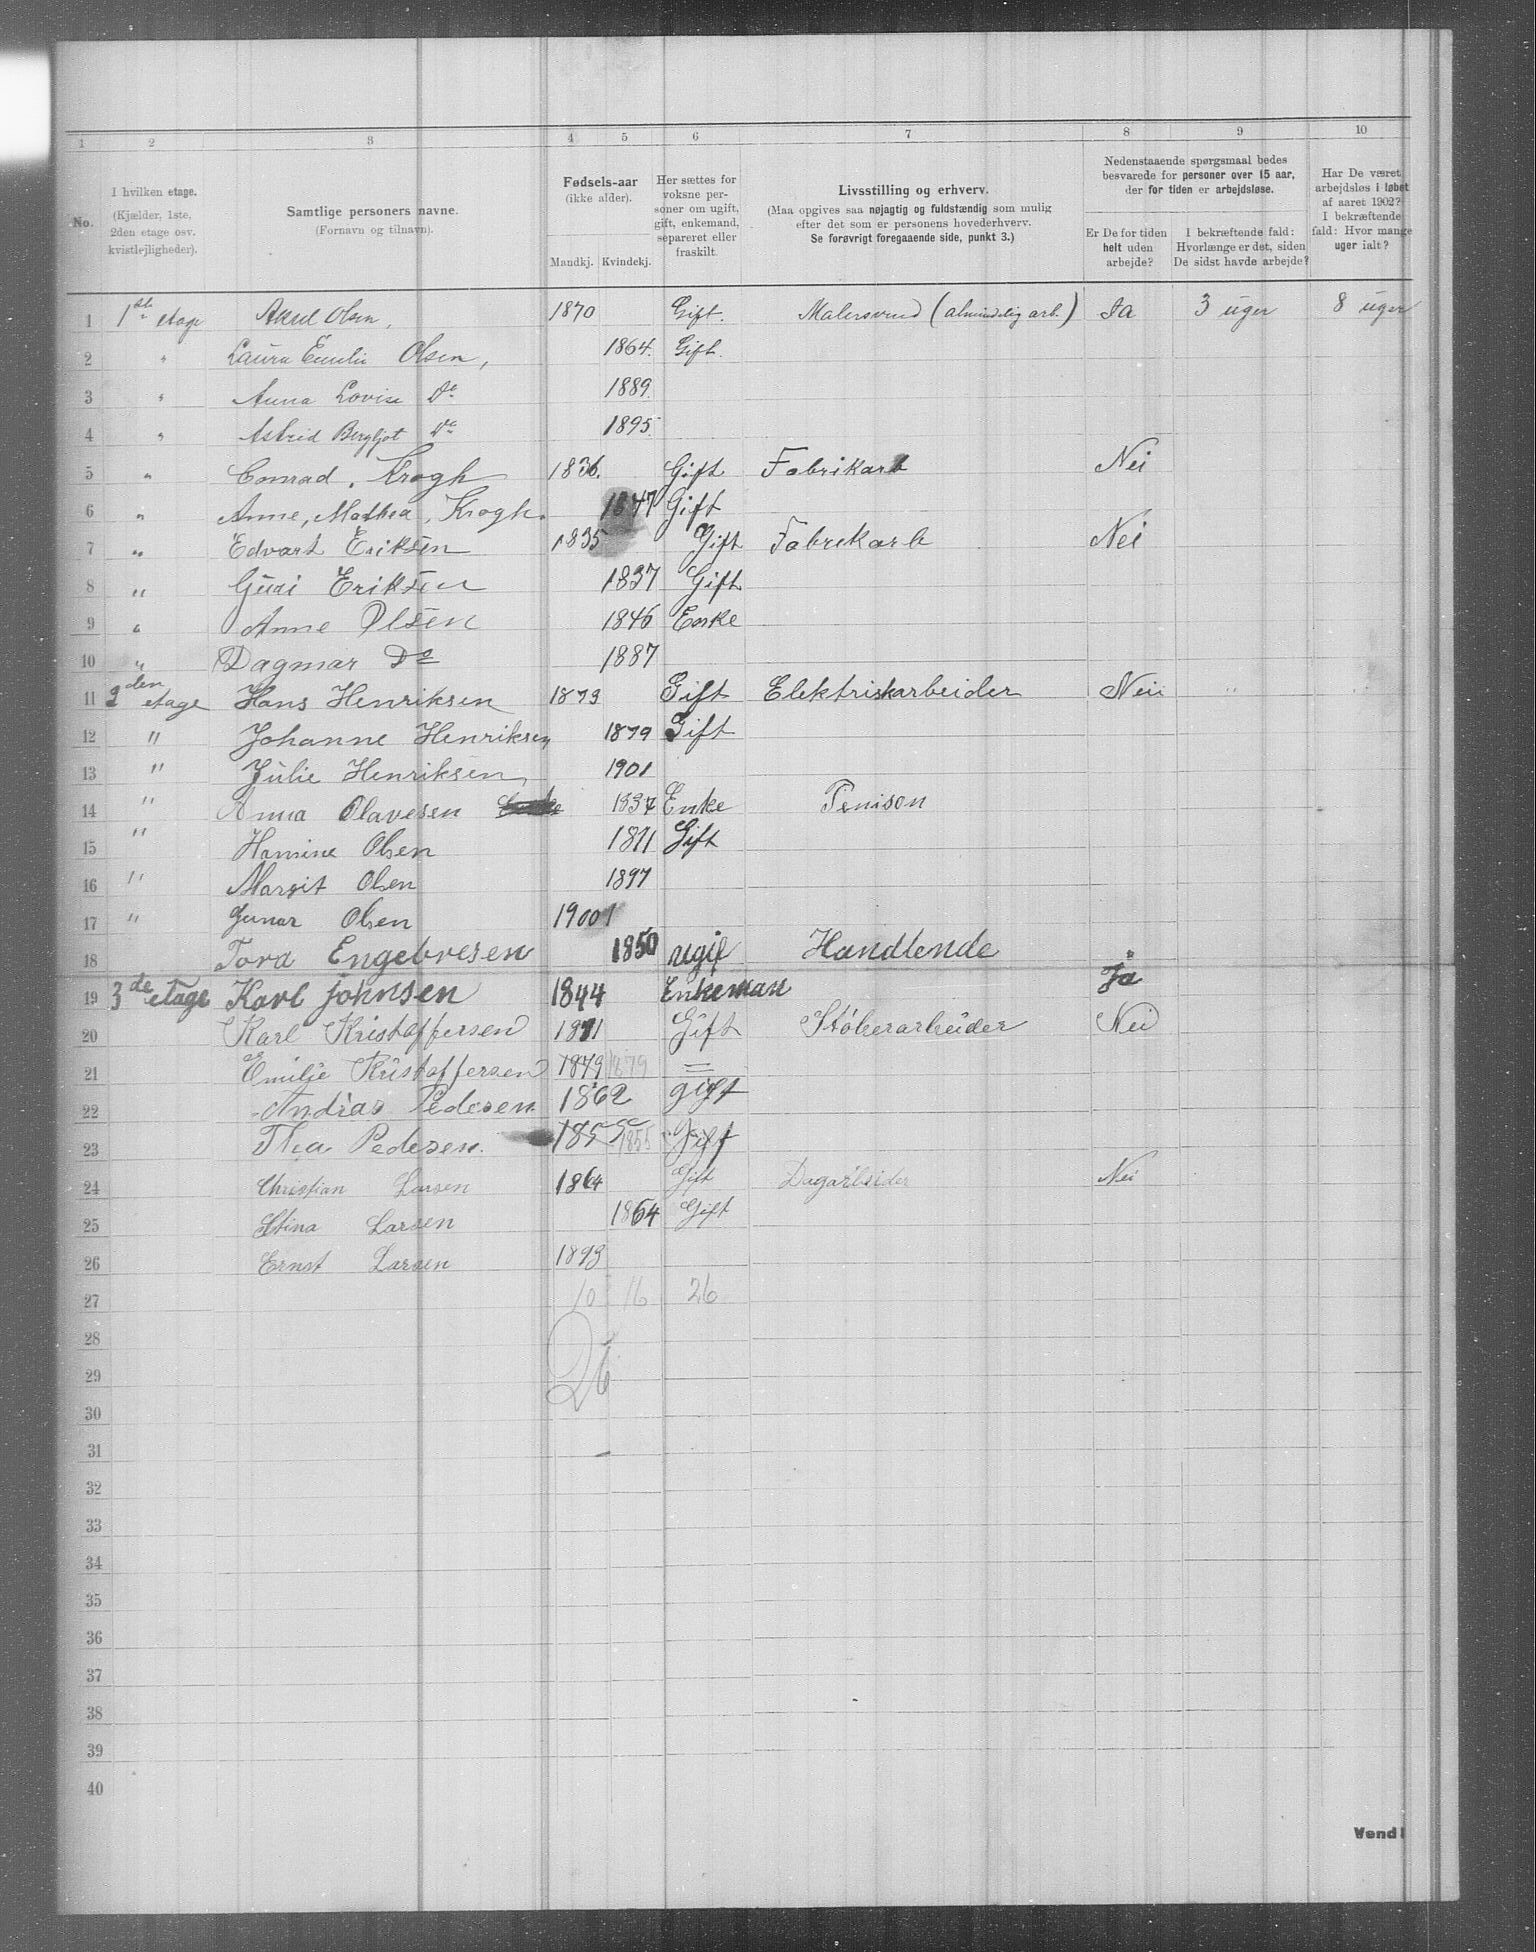 1 2 3 4 5 6 7 8 9 10
No.
I hvilken etage. (Kjælder, 1ste, 2den etage osv. kvistlejligheder).
Samtlige personers navne. (Fornavn og tilnavn).
Fødsels-aar (ikke alder). Mandkj. Kvindekj.
Her sættes for voksne personer om ugift, gift, enkemand, separeret eller fraskilt.
Livsstilling og erhverv. (Maa opgives saa nøjagtig og fuldstændig som mulig efter det som er personens hovederhverv. Se forøvrigt foregaaende side, punkt 3.)
Nedenstaaende spørgsmaal bedes besvarede for personer over 15 aar, der for tiden er arbejdsløse.
Er De for tiden helt uden arbejde?
I bekræftende fald: Hvorlænge er det, siden De sidst havde arbejde?
Har De været arbejdsløs i løbet af aaret 1902? I bekræftende fald: Hvor mange uger ialt?
1 1ste etage Aksel Olsen, 1870 Gift. Malersvend (almindelig arb.) Ja 3 uger 8 uger
2 " Laura Emilie Olsen, 1864. Gift.
3 " Anna Lovise Do 1889.
4 " Astrid Bergljot Do 1895.
5 " Conrad, Krogh 1836. Gift Fabrikarb Nei
6 " Anne, Mathea, Krogh. 1847 Gift
7 " Edvart Eriksen 1835 Gift Fabrekarb Nei
8 " Guri Eriksen 1837 Gift
9 " Anne Olsen 1846 Enke
10 " Dagmar Do 1887
11 2den etage Hans Henriksen 1873 Gift Elektriskarbeider Nei " "
12 " Johanne Henriksen 1879 Gift
13 " Julie Henriksen 1901
14 " Anna Olavesen 1837 Enke Penison
15 " Hansine Olsen 1871 Gift
16 " Margit Olsen 1897
17 " Gunar Olsen 1900
18 Tora Engebresen 1850 ugif Handlende
19 3de etage Karl Johnsen 1844 Enkeman Ja
20 Karl Kristoffersen 1871 Gift Støberarbeider Nei
21 Emilje Kristoffersen 1879 1879 =
22 Andias Pedesen 1862 gift
23 Thea Pedesen. 1855 1855 Gift
24 Christian Larsen 1864 Gift Dagarbeider Nei
25 Stina Larsen 1864 Gift
26 Ernst Larsen 1893
27 10 16 26
28
29 26
30
31
32
33
34
35
36
37
38
39
40
Vend!